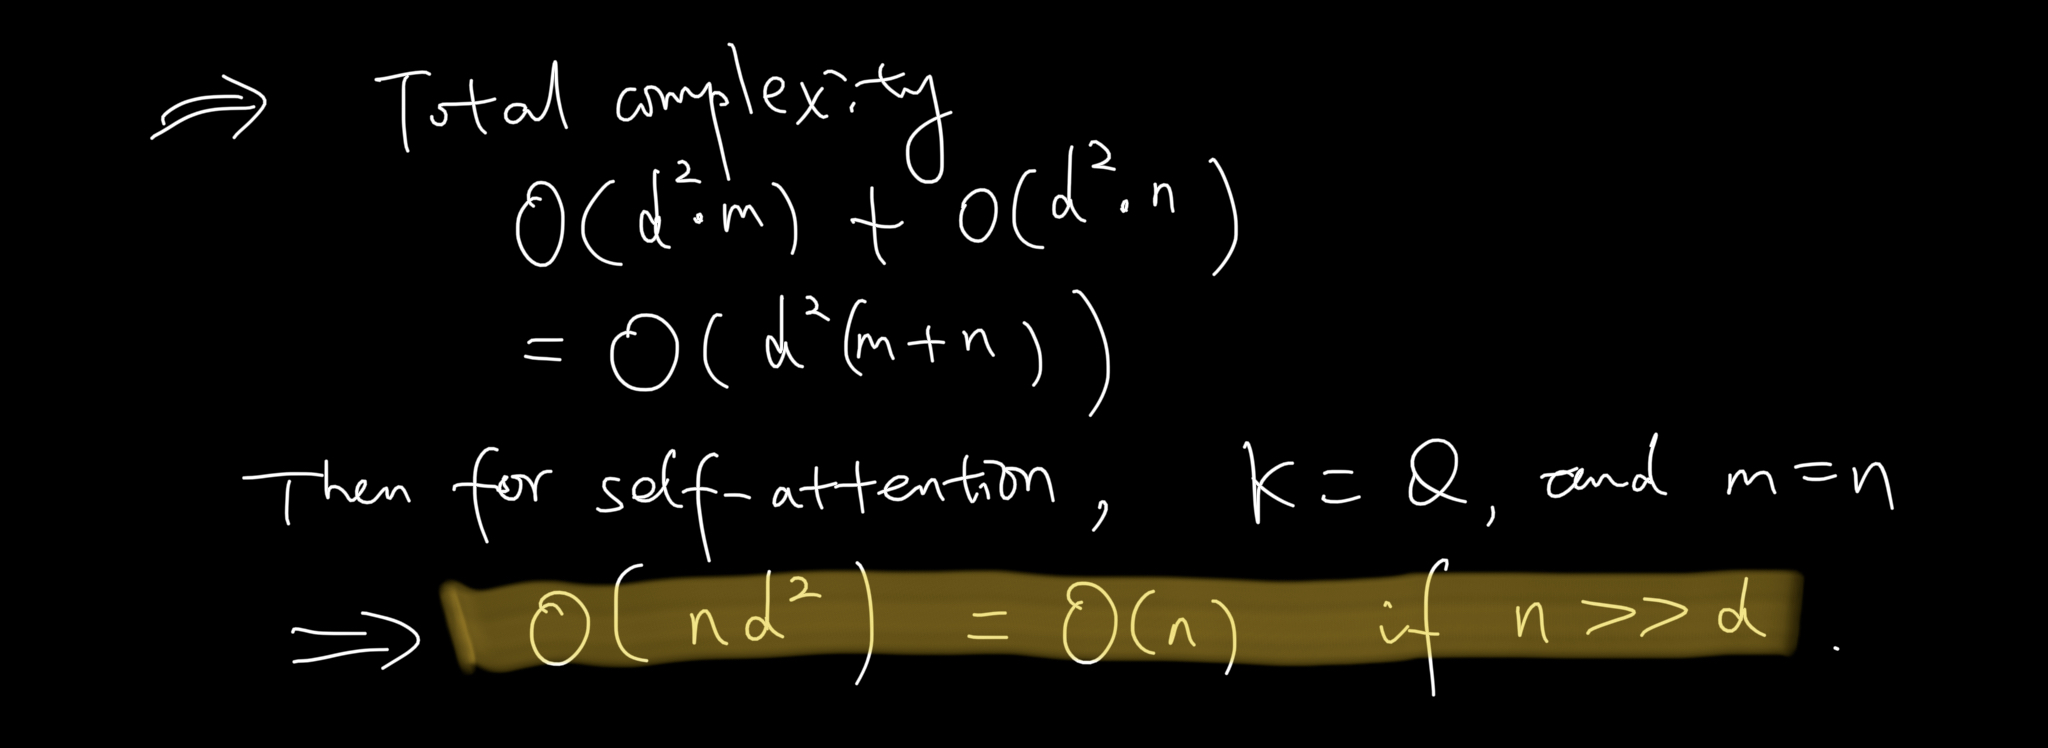 ⇒ Total complexity
O(d²·m) + O(d²·n)
= O(d²(m+n))
Then for self-attention, K = Q, and m=n
⇒ O(nd²) = O(n) if n >> d .